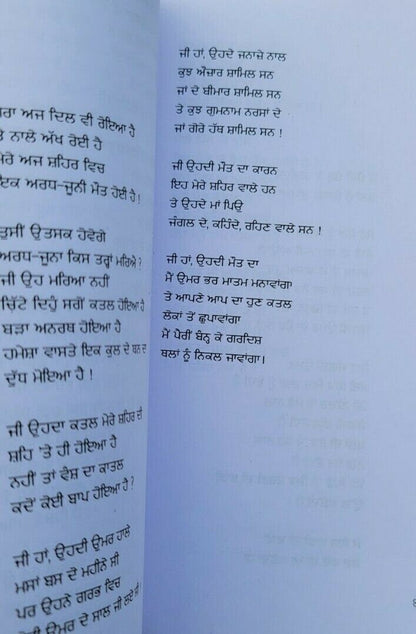 ਅਜ ਦਿਲ ਵੀ ਰੋਇਆ ਹੈ
ਨਾਲੇ ਅੱਖ ਰੋਈ ਹੈ
ਮੇਰੇ ਅਜ ਸ਼ਹਿਰ ਵਿਚ
ਇਕ ਅਰਧ-ਜੂਨੀ ਮੌਤ ਹੋਈ ਹੈ !
ਤੁਸੀਂ ਉਤਸਕ ਹੋਵੋਗੇ
ਅਰਧ-ਜੂਨਾ ਕਿਸ ਤਰ੍ਹਾਂ ਮਰਿਐ ?
ਜੀ ਉਹ ਮਰਿਆ ਨਹੀਂ
ਚਿੱਟੇ ਦਿਹੁੰ ਸਗੋਂ ਕਤਲ ਹੋਇਆ ਹੈ
ਬੜਾ ਅਨਰਥ ਹੋਇਆ ਹੈ
ਹਮੇਸ਼ਾ ਵਾਸਤੇ ਇਕ ਕੁਲ ਦੇ ਥਣ ਦਾ
ਦੁੱਧ ਮੋਇਆ ਹੈ !
ਜੀ ਉਹਦਾ ਕਤਲ ਮੇਰੇ ਸ਼ਹਿਰ ਦੀ
ਸ਼ਹਿ 'ਤੇ ਹੀ ਹੋਇਆ ਹੈ
ਨਹੀਂ ਤਾਂ ਵੰਸ਼ ਦਾ ਕਾਤਲ
ਕਦੋਂ ਕੋਈ ਬਾਪ ਹੋਇਆ ਹੈ ?
ਜੀ ਹਾਂ, ਉਹਦੀ ਉਮਰ ਹਾਲੇ
ਮਸਾਂ ਬਸ ਦੋ ਮਹੀਨੇ ਸੀ
ਪਰ ਉਹਨੇ ਗਰਭ ਵਿਚ
ਉਮਰ ਦੇ ਸਾਲ ਜੀ
ਜੀ ਹਾਂ, ਉਹਦੇ ਜਨਾਜ਼ੇ ਨਾਲ
ਕੁਝ ਔਜ਼ਾਰ ਸ਼ਾਮਿਲ ਸਨ
ਜਾਂ ਦੋ ਬੀਮਾਰ ਸ਼ਾਮਿਲ ਸਨ
ਤੇ ਕੁਝ ਗੁਮਨਾਮ ਨਰਸਾਂ ਦੇ
ਜਾਂ ਗੋਰੇ ਹੱਥ ਸ਼ਾਮਿਲ ਸਨ !
ਜੀ ਉਹਦੀ ਮੌਤ ਦਾ ਕਾਰਨ
ਇਹ ਮੇਰੇ ਸ਼ਹਿਰ ਵਾਲੇ ਹਨ
ਤੇ ਉਹਦੇ ਮਾਂ ਪਿਓ
ਜੰਗਲ ਦੇ, ਕਹਿੰਦੇ, ਰਹਿਣ ਵਾਲੇ ਸਨ !
ਜੀ ਹਾਂ, ਉਹਦੀ ਮੌਤ ਦਾ
ਮੈਂ ਉਮਰ ਭਰ ਮਾਤਮ ਮਨਾਵਾਂਗਾ
ਤੇ ਆਪਣੇ ਆਪ ਦਾ ਹੁਣ ਕਤਲ
ਲੋਕਾਂ ਤੋਂ ਛੁਪਾਵਾਂਗਾ
ਮੈਂ ਪੈਰੀਂ ਬੰਨ੍ਹ ਕੇ ਗਰਦਿਸ਼
ਥਲਾਂ ਨੂੰ ਨਿਕਲ ਜਾਵਾਂਗਾ।